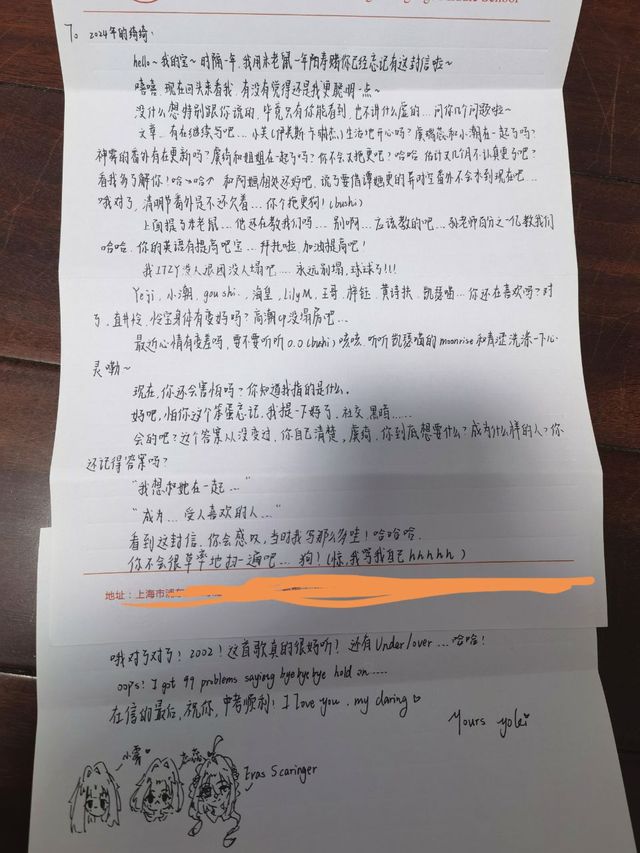 To 2024年的绮绮:
hello~我的宝~时隔一年,我用朱老鼠一年阳寿赌你已经忘记有这封信啦~
嘻嘻 现在回头来看我 有没有觉得还是我更聪明一点~
没什么想特别跟你说的,毕竟只有你能看到,也不讲什么虚的…问你几个问题啦~
文章…有在继续写吧…小芙(伊芙斯·卡 )生活地开心吗?虞瑞 和小潮在一起了吗?
神雾的番外有在更新吗?虞绮和姐姐在一起了吗?你不会又拖更吧?哈哈 估计又几个月不认真更了吧?
看我多了解你!哈→哈↗ 和阿 相处还好吧,说了要借谭 更的 时空番外不会木到现在吧…
哦对了,清明节番外是不还欠着…你个拖更狗!(bushi)
上面提了朱老鼠…他还在教我们吗…别啊…应该教的吧…孙老师百分之一亿教我们
哈哈.你的英语有提高吧宝…拜托啦 加油提高吧!
我ITZY没人退团没人塌吧….永远别塌,球球了!!!
Yeji,小潮,gou shi..海皇,Lily M.王哥.胖钰.黄诗扶.凯瑟喵…你还在喜欢吗?对
了,直井怜,怜宝身体有变好吗?高潮cp没塌房吧…
最近心情有变差吗,要不要听听 0.0(bushi)咳咳.听听凯瑟喵的moonrise和青涩洗涤一下心
灵嘞~
现在,你还会害怕吗?你知道我指的是什么.
好吧,怕你这个笨蛋忘记,我提一下好了,社交.黑暗……
会的吧?这个答案从没变过.你自己清楚,虞绮.你到底想要什么?成为什么样的人?你
还记得答案吗?
“我想和她在一起…”
“成为…受人喜欢的人…”
看到这封信.你会感叹,当时我写那么多哇!哈哈哈.
你不会很草率地扫一遍吧…狗!(惊,我骂我自己hhhhh)
地址:上海市浦东
哦对了对了!2002!这首歌真的很好听!还有Under/over…哈哈!
oops! I got 99 problems saying bye bye bye hold on….
在信的最后,祝你,中考顺利!I love you.my daring♡
Yours yoki
小雾
Eras Scaringer